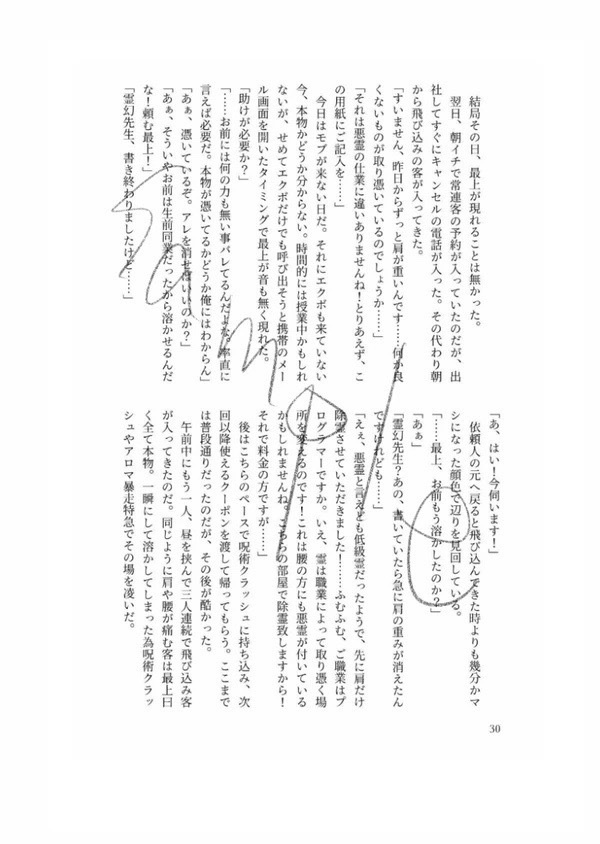 結局その日、最上が現れることは無かった。
翌日、朝イチで常連客の予約が入っていたのだが、出
社してすぐにキャンセルの電話が入った。その代わり朝
から飛び込みの客が入ってきた。
「すいません、昨日からずっと肩が重いんです……何か良
くないものが取り憑いているのでしょうか……」
「それは悪霊の仕業に違いありませんね！とりあえず、こ
の用紙にご記入を……」
今日はモブが来ない日だ。それにエクボも来ていない
今、本物かどうか分からない。時間的には授業中かもしれ
ないが、せめてエクボだけでも呼び出そうと携帯のメー
ル画面を開いたタイミングで最上が音も無く現れた。
「助けが必要か？」
「……お前には何の力も無い事バレてるんだよな。率直に
言えば必要だ。本物が憑いてるかどうか俺にはわからん」
「あぁ、憑いているぞ。アレを消せばいいのか？」
「あぁ、そういやお前は生前同業だったから溶かせるんだ
な！頼む最上！」
「霊幻先生、書き終わりましたけど……」
「あ、はい！今伺います！」
依頼人の元へ戻ると飛び込んできた時よりも幾分かマ
シになった顔色で辺りを見回している。
「……最上、お前もう溶かしたのか？」
「あぁ」
「霊幻先生？あの、書いていたら急に肩の重みが消えたん
ですけれども……」
「えぇ、悪霊と言えども低級霊だったようで、先に肩だけ
除霊させていただきました！……ふむふむ、ご職業はプ
ログラマーですか。いえ、霊は職業によって取り憑く場
所を変えるのです！これは腰の方にも悪霊が付いている
かもしれませんね。こちらの部屋で除霊致しますから！
それで料金の方ですが……」
後はこちらのペースで呪術クラッシュに持ち込み、次
回以降使えるクーポンを渡して帰ってもらう。ここまで
は普段通りだったのだが、その後が酷かった。
午前中にもう一人、昼を挟んで三人連続で飛び込み客
が入ってきたのだ。同じように肩や腰が痛む客は最上曰
く全て本物。一瞬にして溶かしてしまった為呪術クラッ
シュやアロマ暴走特急でその場を凌いだ。
30
Sample